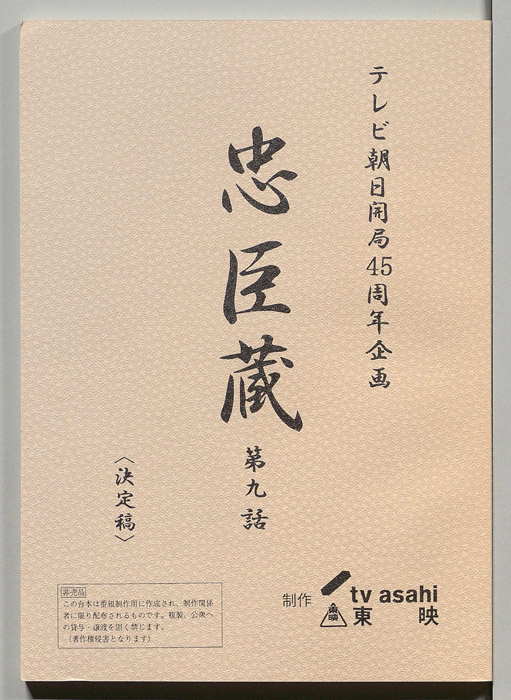 テレビ朝日開局45周年企画
忠臣蔵
第九話
〈決定稿〉
制作
tv asahi
東映
東映
非売品
この台本は番組制作用に作成され、制作関係
者に限り配布されるものです。複製、公衆へ
の貸与・譲渡を固く禁じます。
（著作権侵害となります）